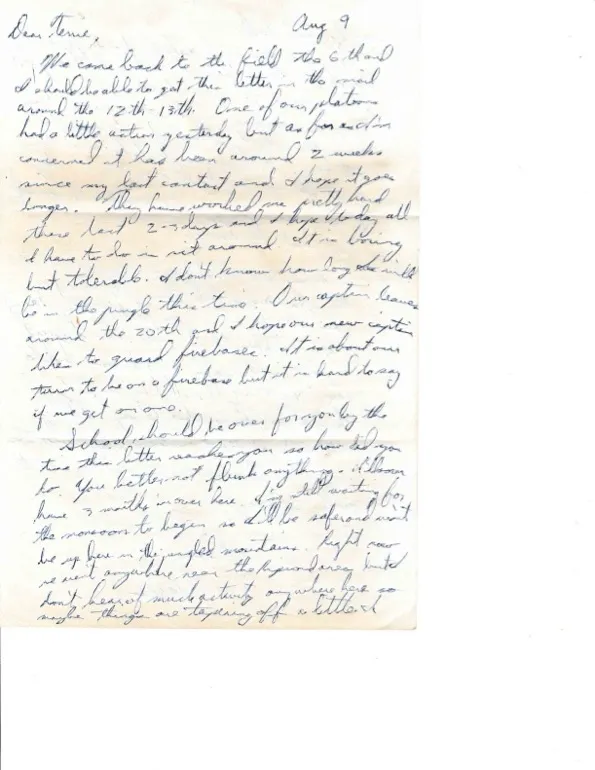 Aug 9
Dear Terrie,
We came back to the field the 6th and
I should be able to get this letter in the mail
around the 12th-13th. One of our platoons
had a little action yesterday but as far as I'm
concerned it has been around 2 weeks
since my last contact and I hope it goes
longer. They have worked me pretty hard
these last 2-3 days and I hope today all
I have to do is sit around. It is boring
but tolerable. I don't know how long we will
be in the jungle this time. Our captain leaves
around the 20th and I hope our new captain
likes to guard firebases. It is about our
turn to be on a firebase but it is hard to say
if we get on one.
School should be over for you by the
time this letter reaches you so how did you
do. You better not flunk anything. I'll soon
have 3 months in over here. I'm still waiting for
the monsoon to begin so I'll be safer and won't
be up here in the jungled mountains. Right now
we aren't anywhere near the area but I
don't hear of much activity anywhere here so
maybe things are tapering off a little. I